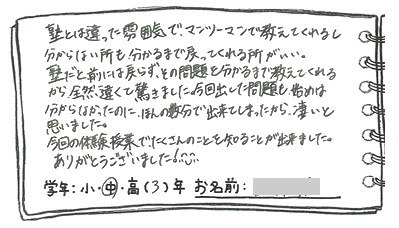 塾とは違った雰囲気でマンツーマンで教えてくれるし
分からない所も分かるまで戻ってくれる所がいい。
塾だと前には戻らず、その問題を分かるまで教えてくれる
から全然違くて驚きました。今回出した問題も始めは
分からなかったのに、ほんの数分で出来てしまったから、凄いと
思いました。
今回の体験授業でたくさんのことを知ることが出来ました。
ありがとうございました!
学年:小・中・高(3)年 お名前: